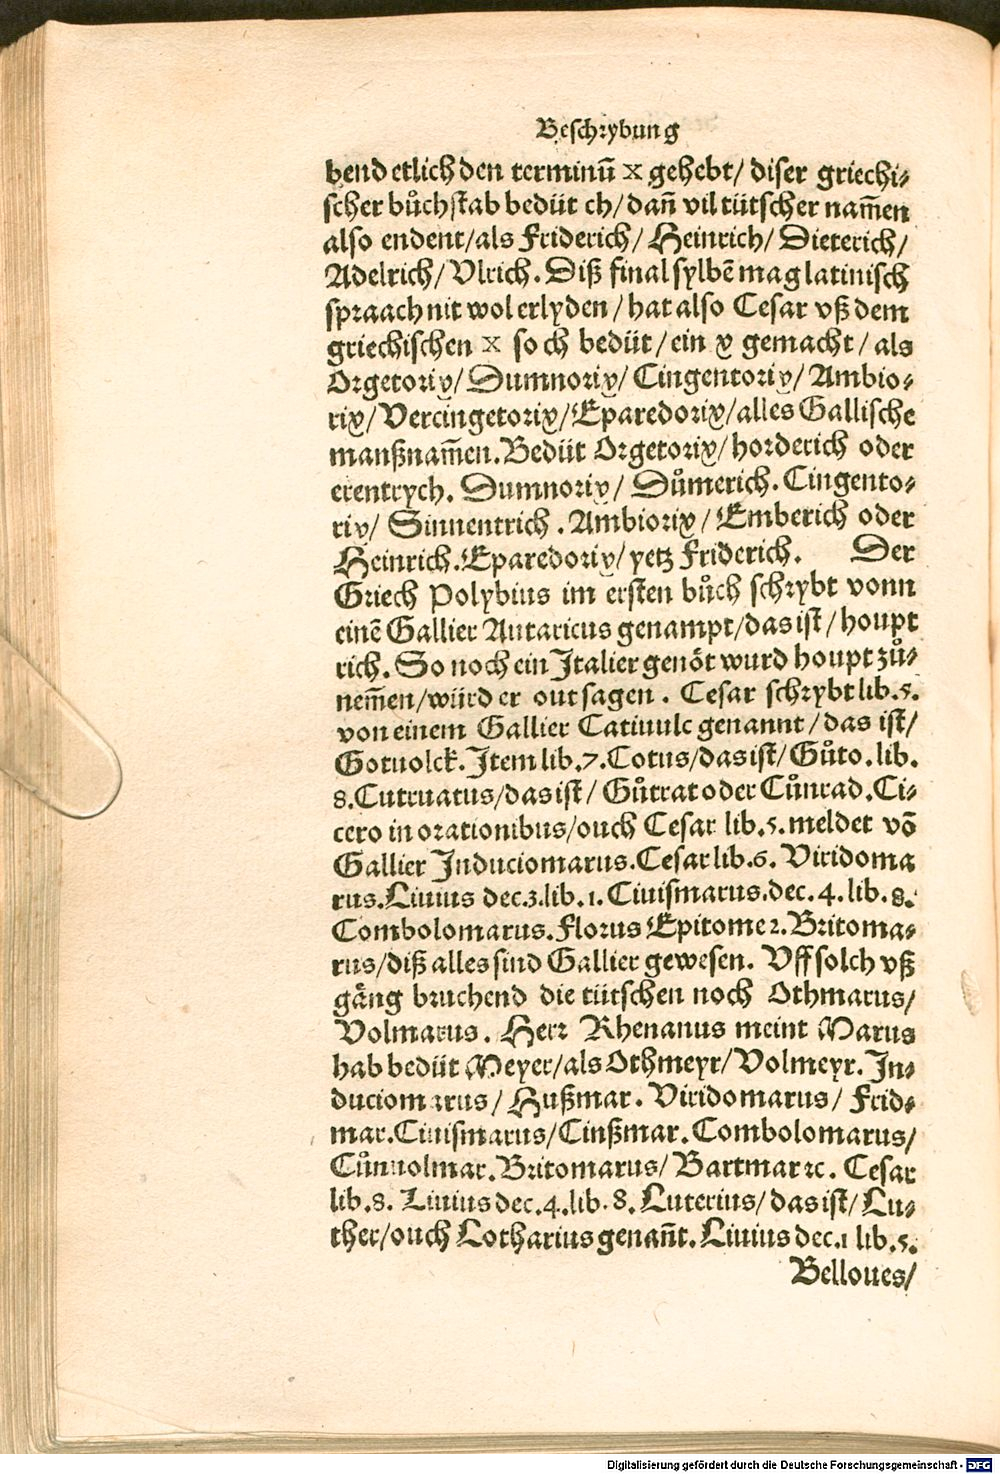 Beschrybung
bend etlich den terminū X gehebt/ diser griechi⸗
scher bůchstab bedüt ch/ dañ vil tütscher nam̄en
also endent/als Friderich/ Heinrich/ Dieterich/
Adelrich/ Vlrich. Diß final sylbē mag latinisch
spraach nit wol erlyden/ hat also Cesar vß dem
griechischen X so ch bedüt/ ein x gemacht/ als
Orgetorix/ Dumnorix/ Cingentorix/ Ambio⸗
rix/ Vercingetorix/ Eparedorix/ alles Gallische
manßnam̄en. Bedüt Orgetorix/ horderich oder
erentrych. Dumnorix/ Důmerich. Cingento⸗
rix/ Sinnentrich. Ambiorix/ Emberich oder
Heinrich. Eparedorix/ yetz Friderich. Der
Griech Polybius im ersten bůch schrybt vonn
einē Gallier Autaricus genampt/ das ist/ houpt
rich. So noch ein Italier genöt wurd houpt zů⸗
nem̄en/ würd er out sagen. Cesar schrybt lib.5.
von einem Gallier Catiuulc genannt/ das ist/
Gotuolck. Item lib.7. Cotus/ das ist/ Gůto. lib.
8. Cutruatus/ das ist/ Gůtrat oder Cůnrad. Ci⸗
cero in orationibus/ ouch Cesar lib.5. meldet vō
Gallier Induciomarus. Cesar lib.6. Viridoma
rus. Liuius dec.3. lib.1. Ciuismarus. dec.4. lib.8.
Combolomarus. Florus Epitome 2. Britoma⸗
rus/ diß alles sind Gallier gewesen. Vff solch vß
gäng bruchend die tütschen noch Othmarus/
Volmarus. Herr Rhenanus meint Marus
hab bedüt Meyer/ als Othmeyr/ Volmeyr. In⸗
duciomarus/ Hußmar. Viridomarus/ Frid⸗
mar. Ciuismarus/ Cinßmar. Combolomarus/
Cůnuolmar. Britomarus/ Bartmar ꝛc. Cesar
lib.8. Liuius dec.4. lib.8. Luterius/ das ist/ Lu⸗
ther/ ouch Lotharius genañt. Liuius dec.1 lib.5.
Belloues/
Digitalisierung gefördert durch die Deutsche Forschungsgemeinschaft - DFG